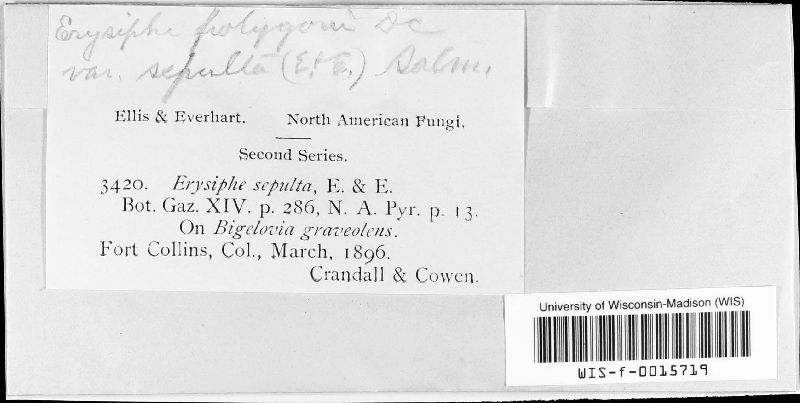 Erysiphe polygoni DC
var. sepulta (E. & E.) Salm.
Ellis & Everhart. North American Fungi.
Second Series.
3420. Erysiphe sepulta, E. & E.
Bot. Gaz. XIV. p. 286, N. A. Pyr. p. 13.
On Bigelovia graveolens.
Fort Collins, Col., March, 1896.
Crandall & Cowen.
University of Wisconsin-Madison (WIS)
WIS-f-0015719